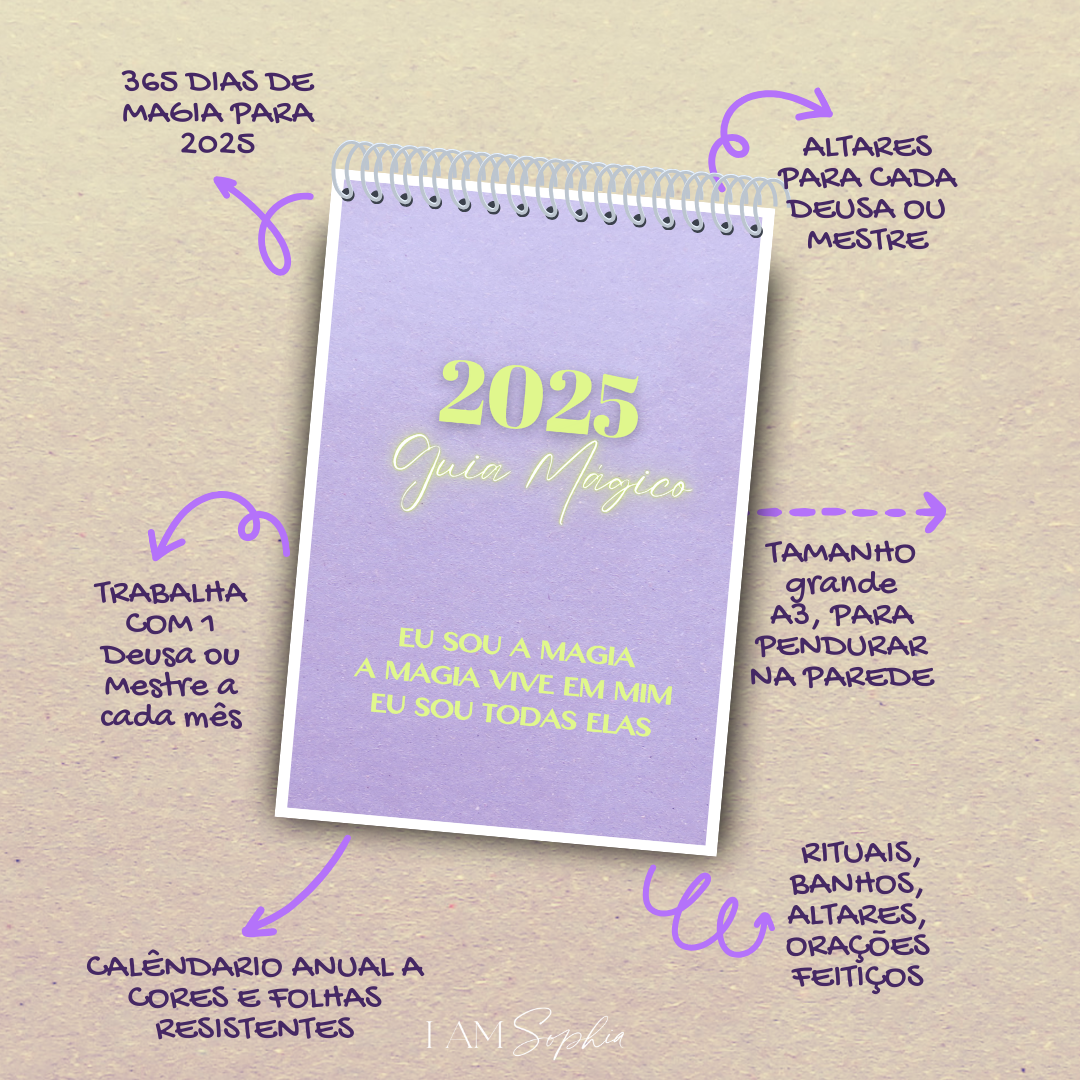 365 DIAS DE
MAGIA PARA
2025
ALTARES
PARA CADA
DEUSA OU
MESTRE
2025
Guia Mágico
EU SOU A MAGIA
A MAGIA VIVE EM MIM
EU SOU TODAS ELAS
TRABALHA
COM 1
Deusa ou
Mestre a
cada mês
TAMANHO
grande
A3, PARA
PENDURAR
NA PAREDE
RITUAIS,
BANHOS,
ALTARES,
ORAÇÕES
FEITIÇOS
CALÊNDARIO ANUAL A
CORES E FOLHAS
RESISTENTES
I AM Sophia